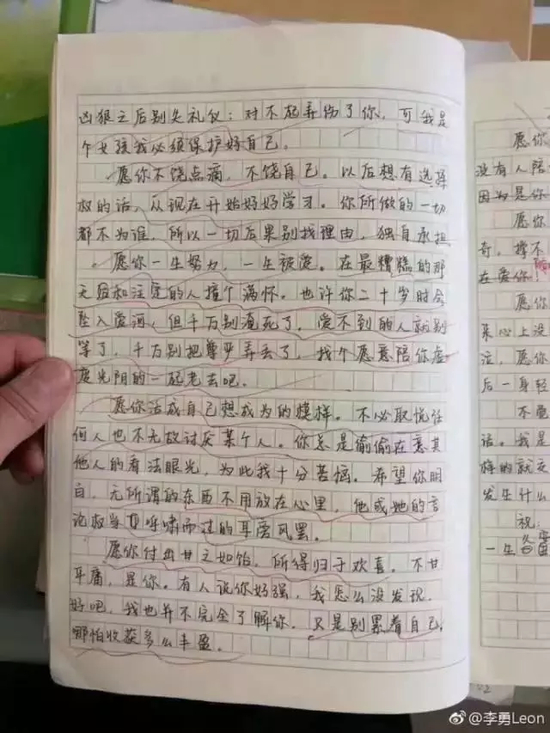 凶狠之后别失礼仪：对不起弄伤了你，可我是
个女孩我必须保护好自己。
愿你不饶点滴，不饶自己。以后想有选择
权的话，从现在开始好好学习。你所做的一切
都不为谁。所以一切后果别找理由，独自承担。
愿你一生努力，一生被爱。在最糟糕的那
天后和注定的人撞个满怀。也许你二十岁时会
坠入爱河，但千万别淹死了。爱不到的人就别
等了，千万别把尊严弄丢了，找个愿意陪你虚
度光阴的一起老去吧。
愿你活成自己想成为的模样。不必取悦任
何人也不无故讨厌某个人。你总是偷偷在意其
他人的看法眼光，为此我十分苦恼。希望你明
白，无所谓的东西不用放在心里，他或她的言
论权当呼啸而过的耳旁风罢。
愿你付出甘之如饴，所得归于欢喜。不甘
平庸，是你。有人说你好强，我怎么没发现。
好吧，我也并不完全了解你。只是别累着自己，
哪怕收获多么丰盈。
愿你
没有人陪
因为是你
愿你
奇。撑不
在爱你
愿你
某心上没
注，愿你
后一身轻
不要
话。我是
样的就交
发生什么
祝：
一生
@李勇Leon